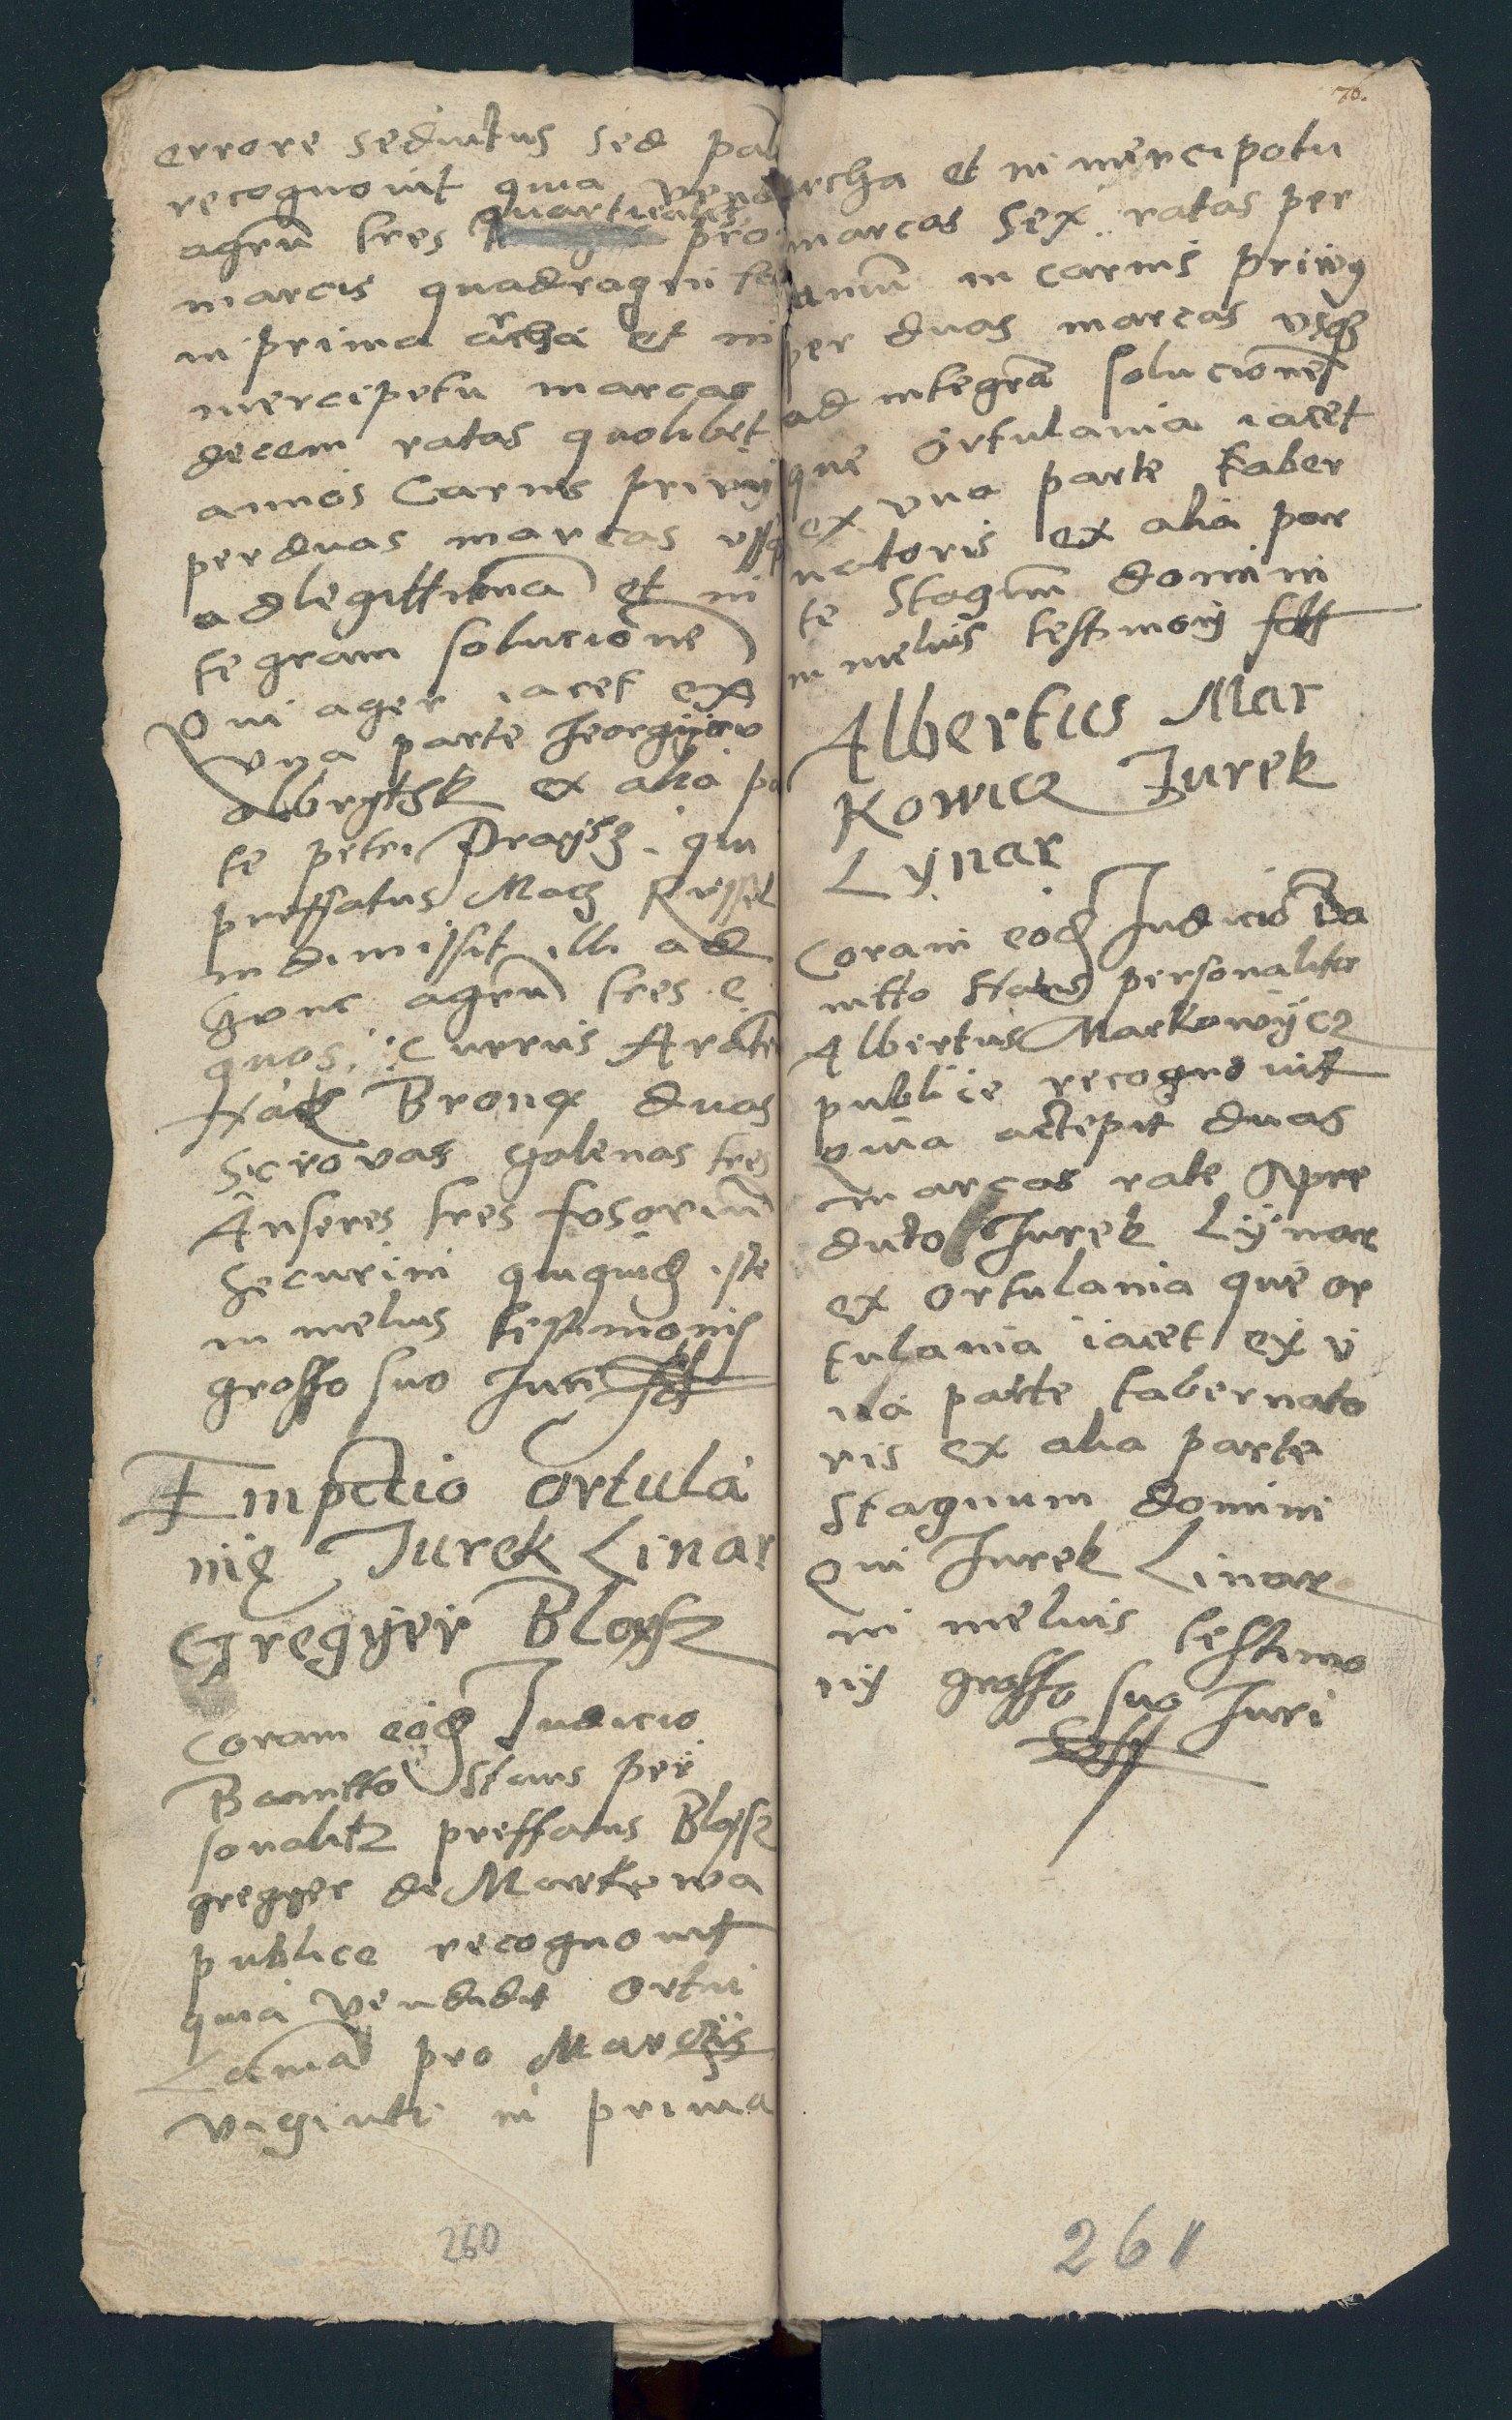 errore seductus sed pal
recognovit quia vend
quartuales
agrū tres pro
marcis quadragin
in prima archa et in
mercipotu marcas
decem ratas quolibet
annos Carnis privij
per duas marcas
ad legittimā et in
tegram solucione
Qui ager iacet ex
vna parte Jeorgij
olbrytsk ex alia pa
te petri Praysz qui
preffatus Macz Russel
in dimissit illi ad
hunc agrū tres e
quos Currus Aratrū
Bronq duas
Scrovas galenas tres
Anseres tres fosoriū
Securim quiquid iste
in melius testimoniū
grosso suo Juri
Empcio ortula
nie Jurek Linar
Gregyer Blaysz
Coram eodē Judicio
Bannitto Stans per
sonalitz preffatus Blaysz
gregger de Markowa
publice recognovit
quia vendidit Ortu
Laniā pro Marcijs
viginti in prima
260
70.
rcha et in mercipotu
marcas Sex ratas per
annū in carnis privij
per duas marcas vsqz
ad integrā solucionē
que ortulania iacet
ex vna parte Taber
natoris ex alia par
te Stagnū domini
in melius testimoni
Albertus Mar
Kowicz Jurek
Lynar
Coram eodē Judicio Ba
nitto Stans personaliter
Albertus Markowycz
publice recognovit
quia accepit duas
marcas rate
dicto Jurek Lynar
ex ortulania que or
tulania iacet ex v
na parte tabernato
ris ex alia parte
Stagnum domini
Qui Jurek Linar
in melius testimo
nij grosso suo Juri
261